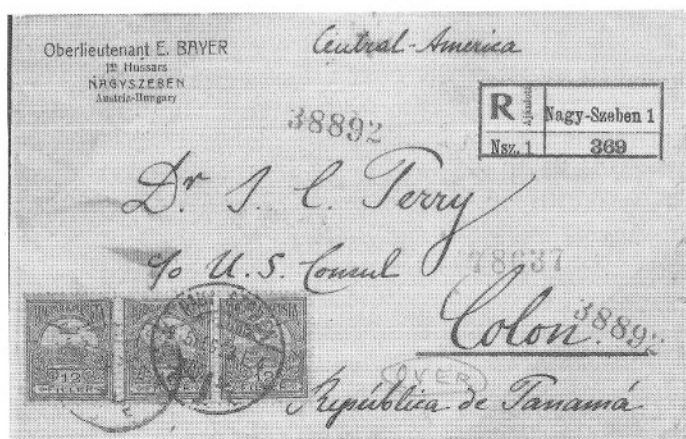 Oberlieutenant E. BAYER
Hussars
NAGYSZEBEN
Austria-Hungary
Central-America
R Ajánlott Nagy-Szeben 1
Nsz. 1 369
38892
Dr J. C. Perry
c/o U. S. Consul
78637
Colon.
38892
12 12
OVER
República de Panamá